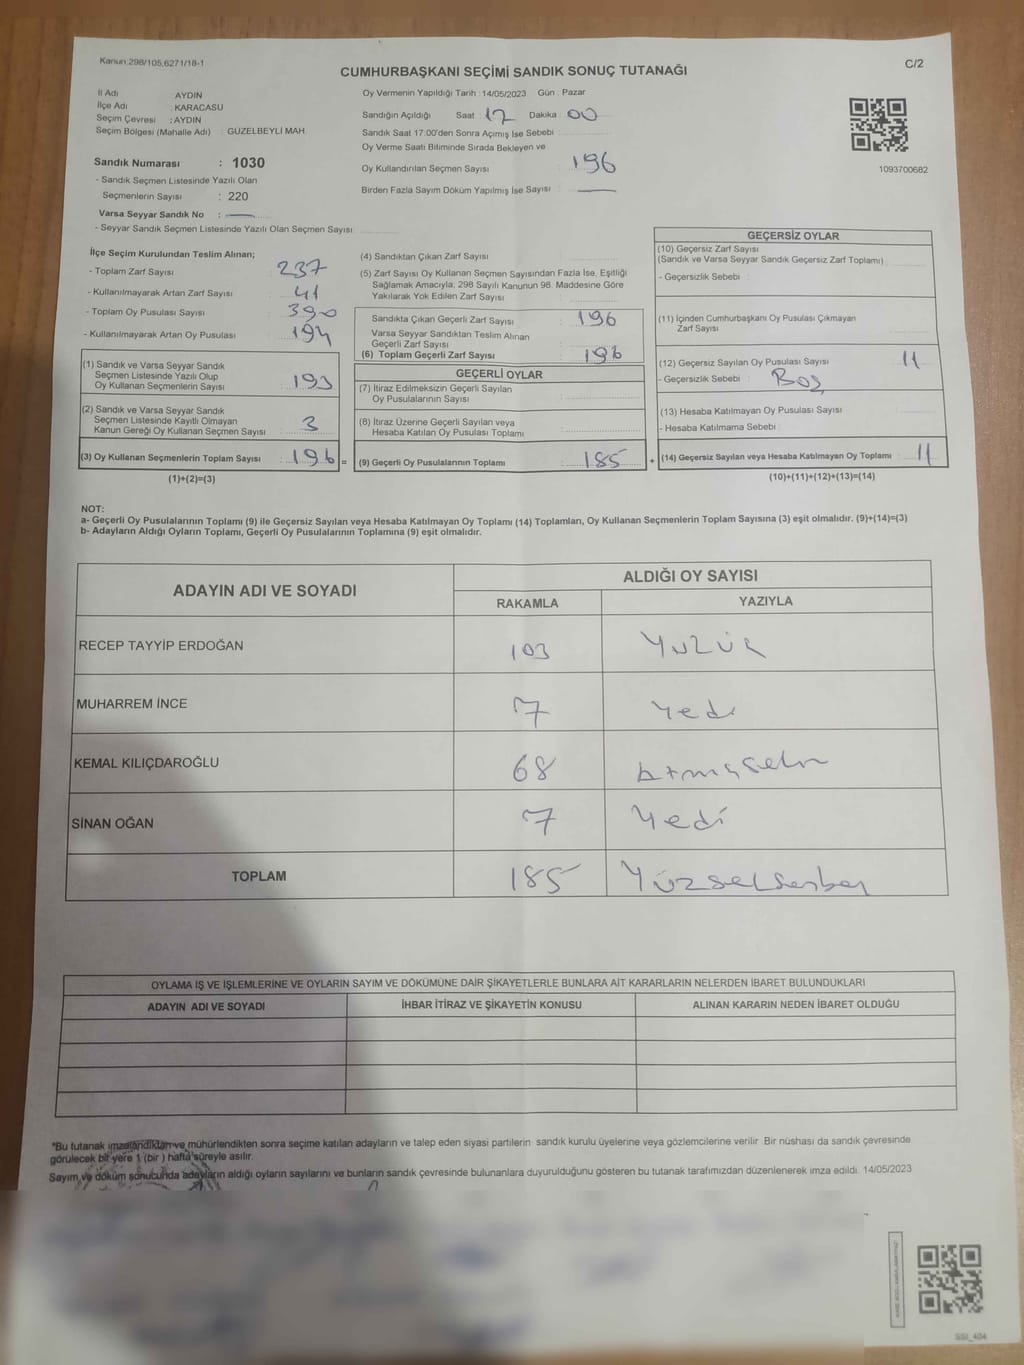 Kanun:298/105,6271/18-1
C/2
CUMHURBAŞKANI SEÇİMİ SANDIK SONUÇ TUTANAĞI
İl Adı : AYDIN
İlçe Adı : KARACASU
Seçim Çevresi : AYDIN
Seçim Bölgesi (Mahalle Adı) : GÜZELBEYLİ MAH.
Sandık Numarası : 1030
- Sandık Seçmen Listesinde Yazılı Olan
Seçmenlerin Sayısı : 220
Varsa Seyyar Sandık No : —
- Seyyar Sandık Seçmen Listesinde Yazılı Olan Seçmen Sayısı
Oy Vermenin Yapıldığı Tarih : 14/05/2023 Gün : Pazar
Sandığın Açıldığı Saat : 17 Dakika : 00
Sandık Saat 17:00'den Sonra Açımış İse Sebebi :
Oy Verme Saati Bitiminde Sırada Bekleyen ve
Oy Kullandırılan Seçmen Sayısı : 196
Birden Fazla Sayım Döküm Yapılmış İse Sayısı : —
1093700682
İlçe Seçim Kurulundan Teslim Alınan;
- Toplam Zarf Sayısı : 237
- Kullanılmayarak Artan Zarf Sayısı : 41
- Toplam Oy Pusulası Sayısı : 390
- Kullanılmayarak Artan Oy Pusulası : 194
(1) Sandık ve Varsa Seyyar Sandık
Seçmen Listesinde Yazılı Olup
Oy Kullanan Seçmenlerin Sayısı : 193
(2) Sandık ve Varsa Seyyar Sandık
Seçmen Listesinde Kayıtlı Olmayan
Kanun Gereği Oy Kullanan Seçmen Sayısı : 3
(3) Oy Kullanan Seçmenlerin Toplam Sayısı : 196 =
(1)+(2)=(3)
(4) Sandıktan Çıkan Zarf Sayısı :
(5) Zarf Sayısı Oy Kullanan Seçmen Sayısından Fazla İse, Eşitliği
Sağlamak Amacıyla, 298 Sayılı Kanunun 98. Maddesine Göre
Yakılarak Yok Edilen Zarf Sayısı :
Sandıkta Çıkan Geçerli Zarf Sayısı : 196
Varsa Seyyar Sandıktan Teslim Alınan
Geçerli Zarf Sayısı :
(6) Toplam Geçerli Zarf Sayısı : 196
GEÇERLİ OYLAR
(7) İtiraz Edilmeksizin Geçerli Sayılan
Oy Pusulalarının Sayısı :
(8) İtiraz Üzerine Geçerli Sayılan veya
Hesaba Katılan Oy Pusulası Toplamı :
(9) Geçerli Oy Pusulalarının Toplamı : 185 +
GEÇERSİZ OYLAR
(10) Geçersiz Zarf Sayısı
(Sandık ve Varsa Seyyar Sandık Geçersiz Zarf Toplamı) :
- Geçersizlik Sebebi :
(11) İçinden Cumhurbaşkanı Oy Pusulası Çıkmayan
Zarf Sayısı :
(12) Geçersiz Sayılan Oy Pusulası Sayısı : 11
- Geçersizlik Sebebi : Boş
(13) Hesaba Katılmayan Oy Pusulası Sayısı :
- Hesaba Katılmama Sebebi :
(14) Geçersiz Sayılan veya Hesaba Katılmayan Oy Toplamı : 11
(10)+(11)+(12)+(13)=(14)
NOT:
a- Geçerli Oy Pusulalarının Toplamı (9) ile Geçersiz Sayılan veya Hesaba Katılmayan Oy Toplamı (14) Toplamları, Oy Kullanan Seçmenlerin Toplam Sayısına (3) eşit olmalıdır. (9)+(14)=(3)
b- Adayların Aldığı Oyların Toplamı, Geçerli Oy Pusulalarının Toplamına (9) eşit olmalıdır.
ADAYIN ADI VE SOYADI
ALDIĞI OY SAYISI
RAKAMLA YAZIYLA
RECEP TAYYİP ERDOĞAN 103
MUHARREM İNCE 7 Yedi
KEMAL KILIÇDAROĞLU 68
SİNAN OĞAN 7 Yedi
TOPLAM 185
OYLAMA İŞ VE İŞLEMLERİNE VE OYLARIN SAYIM VE DÖKÜMÜNE DAİR ŞİKAYETLERLE BUNLARA AİT KARARLARIN NELERDEN İBARET BULUNDUKLARI
ADAYIN ADI VE SOYADI İHBAR İTİRAZ VE ŞİKAYETİN KONUSU ALINAN KARARIN NEDEN İBARET OLDUĞU
*Bu tutanak imzalandıktan ve mühürlendikten sonra seçime katılan adayların ve talep eden siyasi partilerin sandık kurulu üyelerine veya gözlemcilerine verilir. Bir nüshası da sandık çevresinde
görülecek bir yere 1 (bir ) hafta süreyle asılır.
Sayım ve döküm sonucunda adayların aldığı oyların sayılarını ve bunların sandık çevresinde bulunanlara duyurulduğunu gösteren bu tutanak tarafımızdan düzenlenerek imza edildi. 14/05/2023
SSI_404